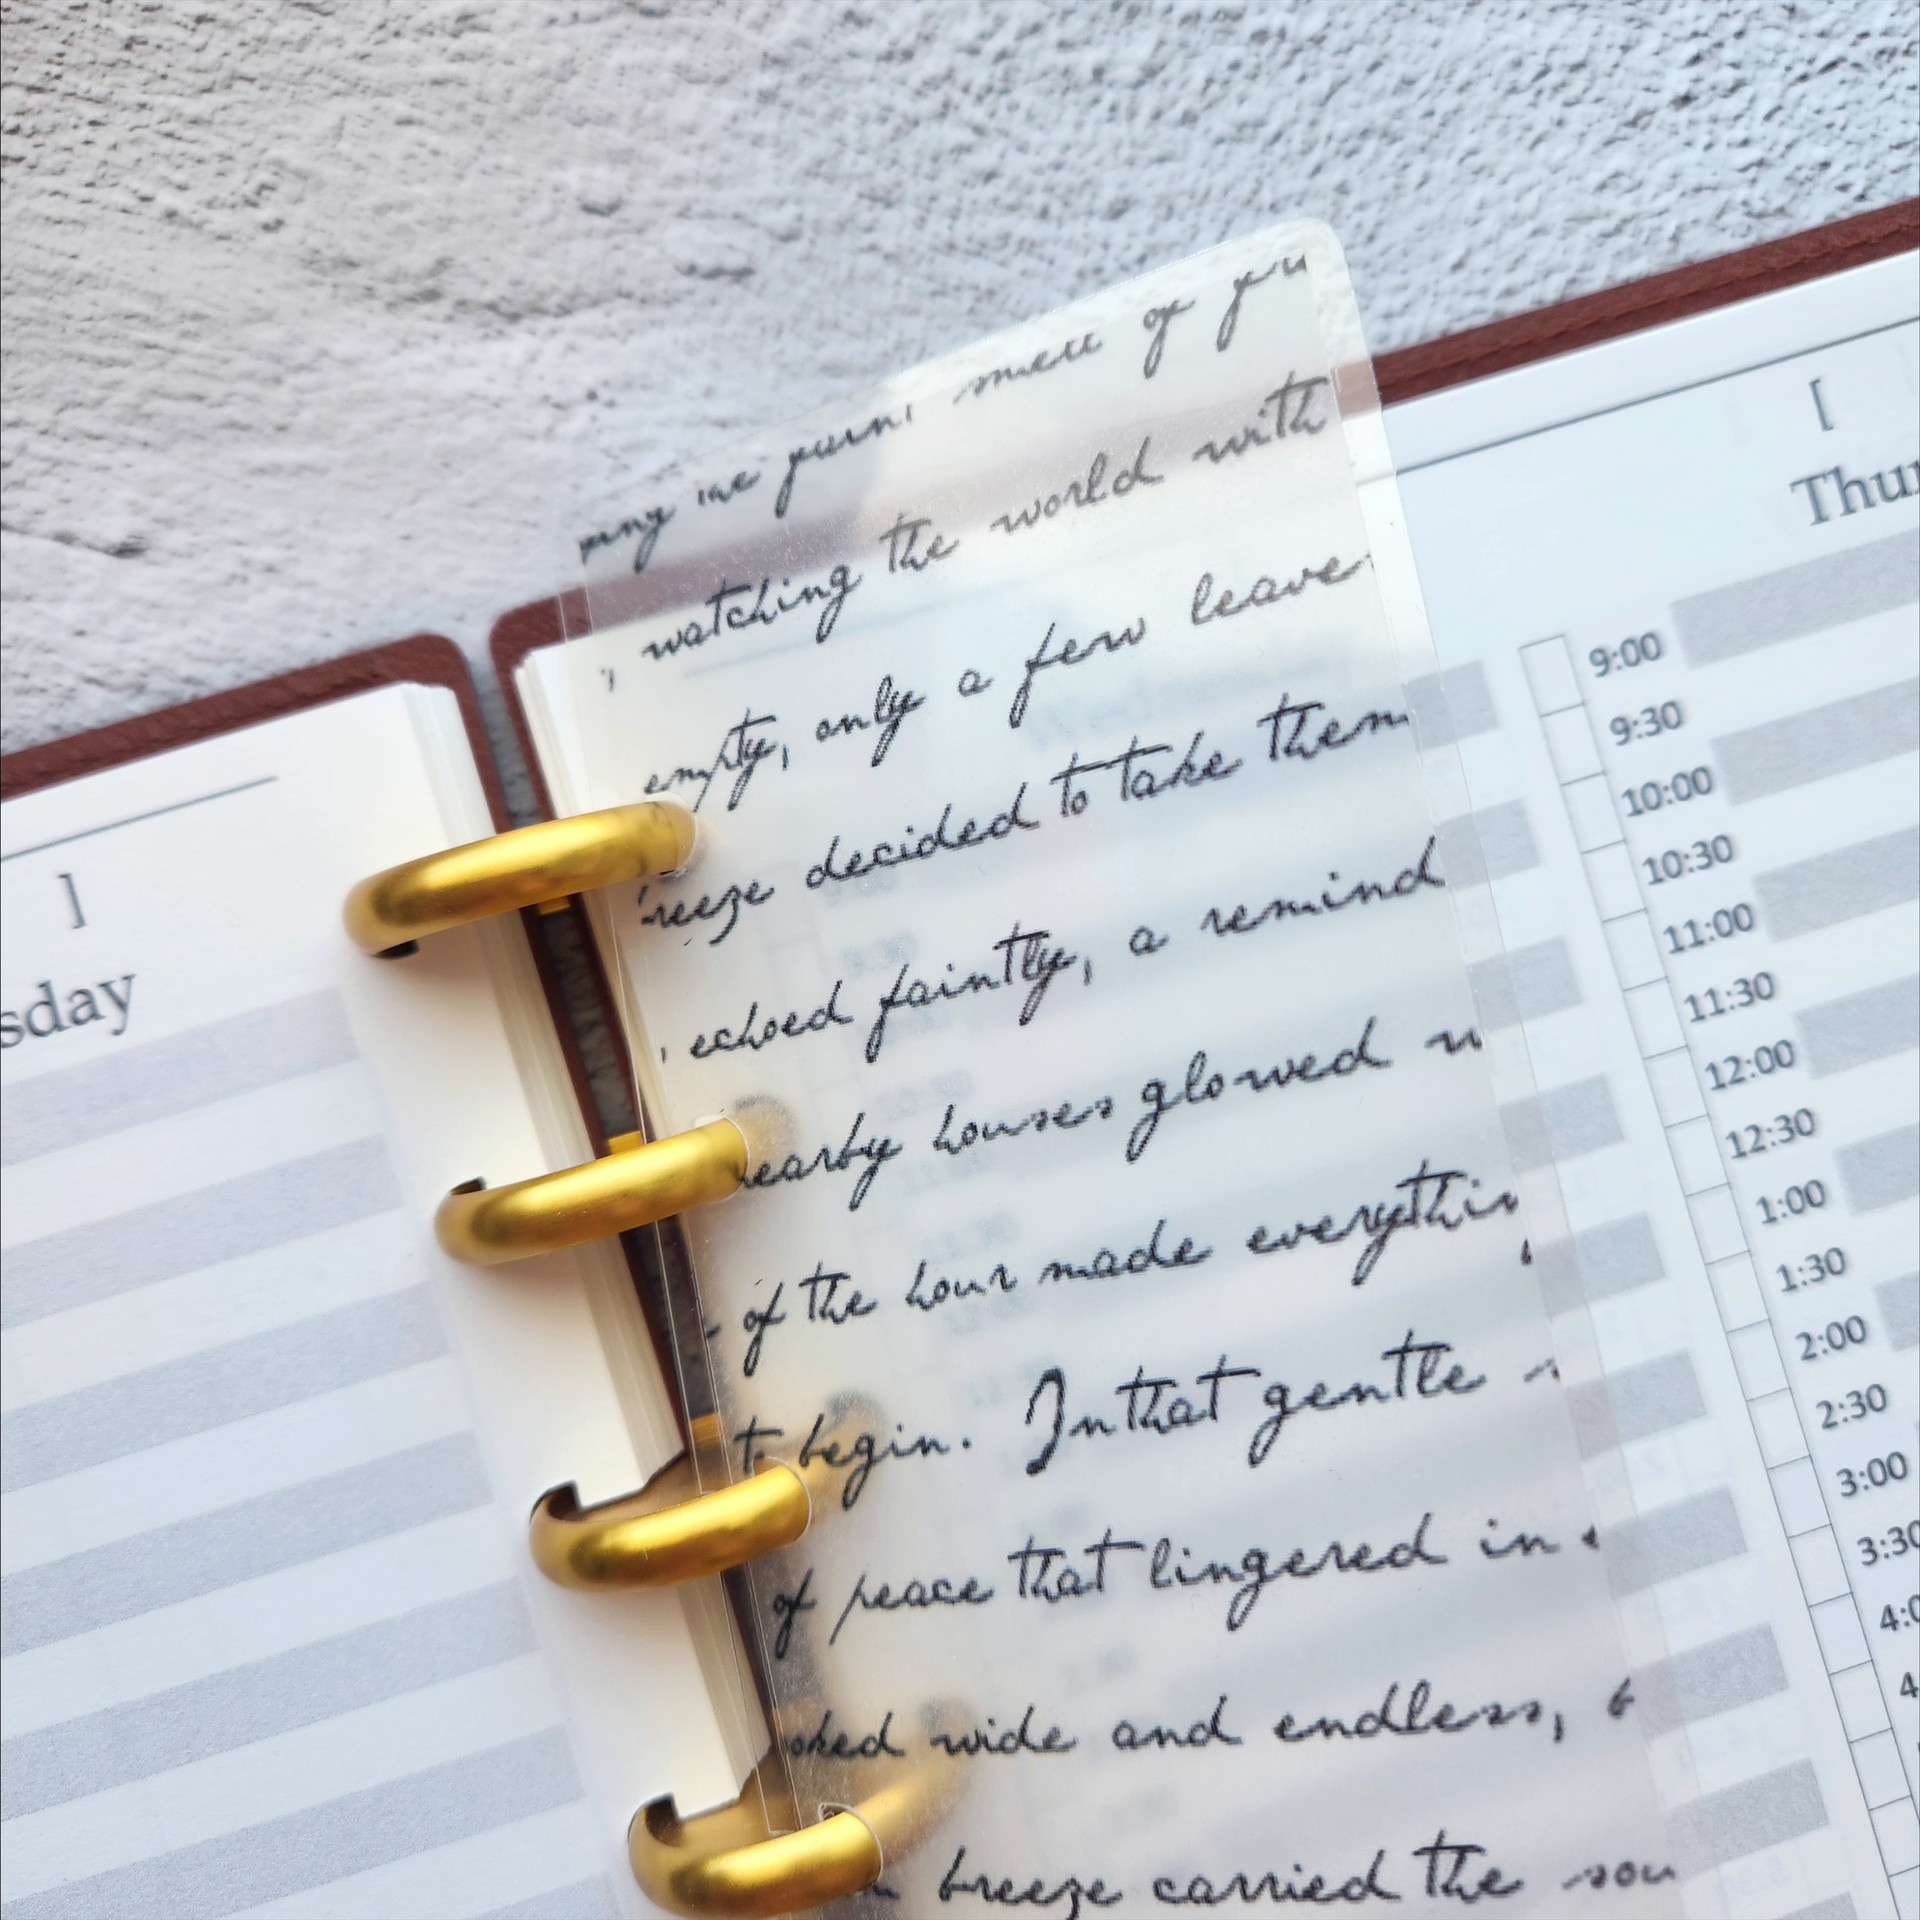 ]
sday
the faint smell of
watching the world with
empty, only a few leave
reeze decided to take them
echoed faintly, a remind
nearby houses glowed
of the hour made everythin
to begin. In that gentle
of peace that lingered in
oked wide and endless, b
breeze carried the sou
[
Thur
9:00
9:30
10:00
10:30
11:00
11:30
12:00
12:30
1:00
1:30
2:00
2:30
3:00
3:30
4:0
4